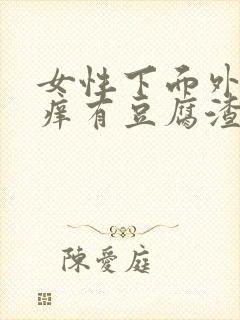 女性下面外
痒有豆腐渣
陳愛庭